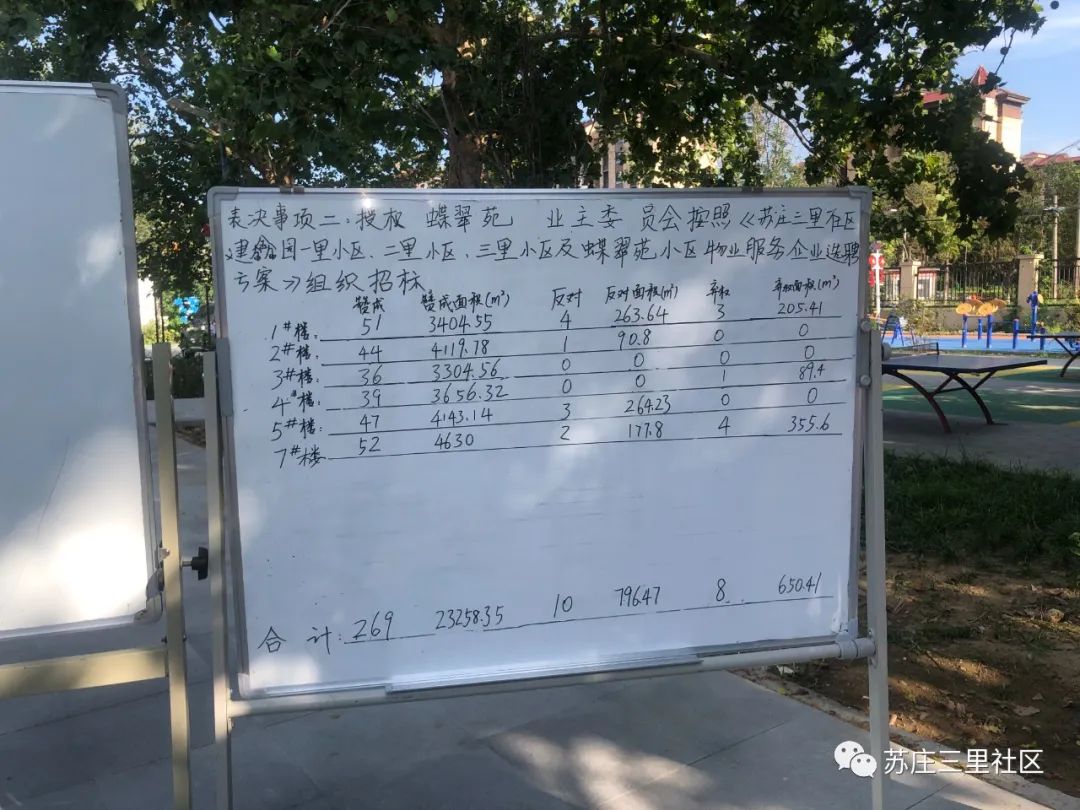 表决事项二、授权 蝶翠苑 业主委员会按照《苏庄三里社区
建 园一里小区、二里小区、三里小区及蝶翠苑小区物业服务企业选聘
方案》组织招标
赞成 赞成面积(m²) 反对 反对面积(m²) 弃权 弃权面积(m²)
1#楼: 51 3404.55 4 263.64 3 205.41
2#楼: 44 4119.78 1 90.8 0 0
3#楼: 36 3304.56 0 0 0 0
4#楼: 39 3656.32 0 0 1 89.4
5#楼: 47 4143.14 3 264.23 0 0
7#楼 52 4630 2 177.8 4 355.6
合计: 269 23258.35 10 796.47 8 650.41
苏庄三里社区